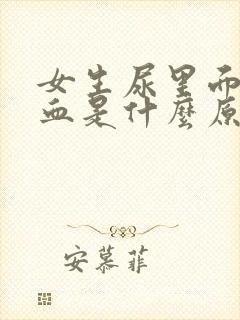 女生尿里面
血是什麼原
安慕菲